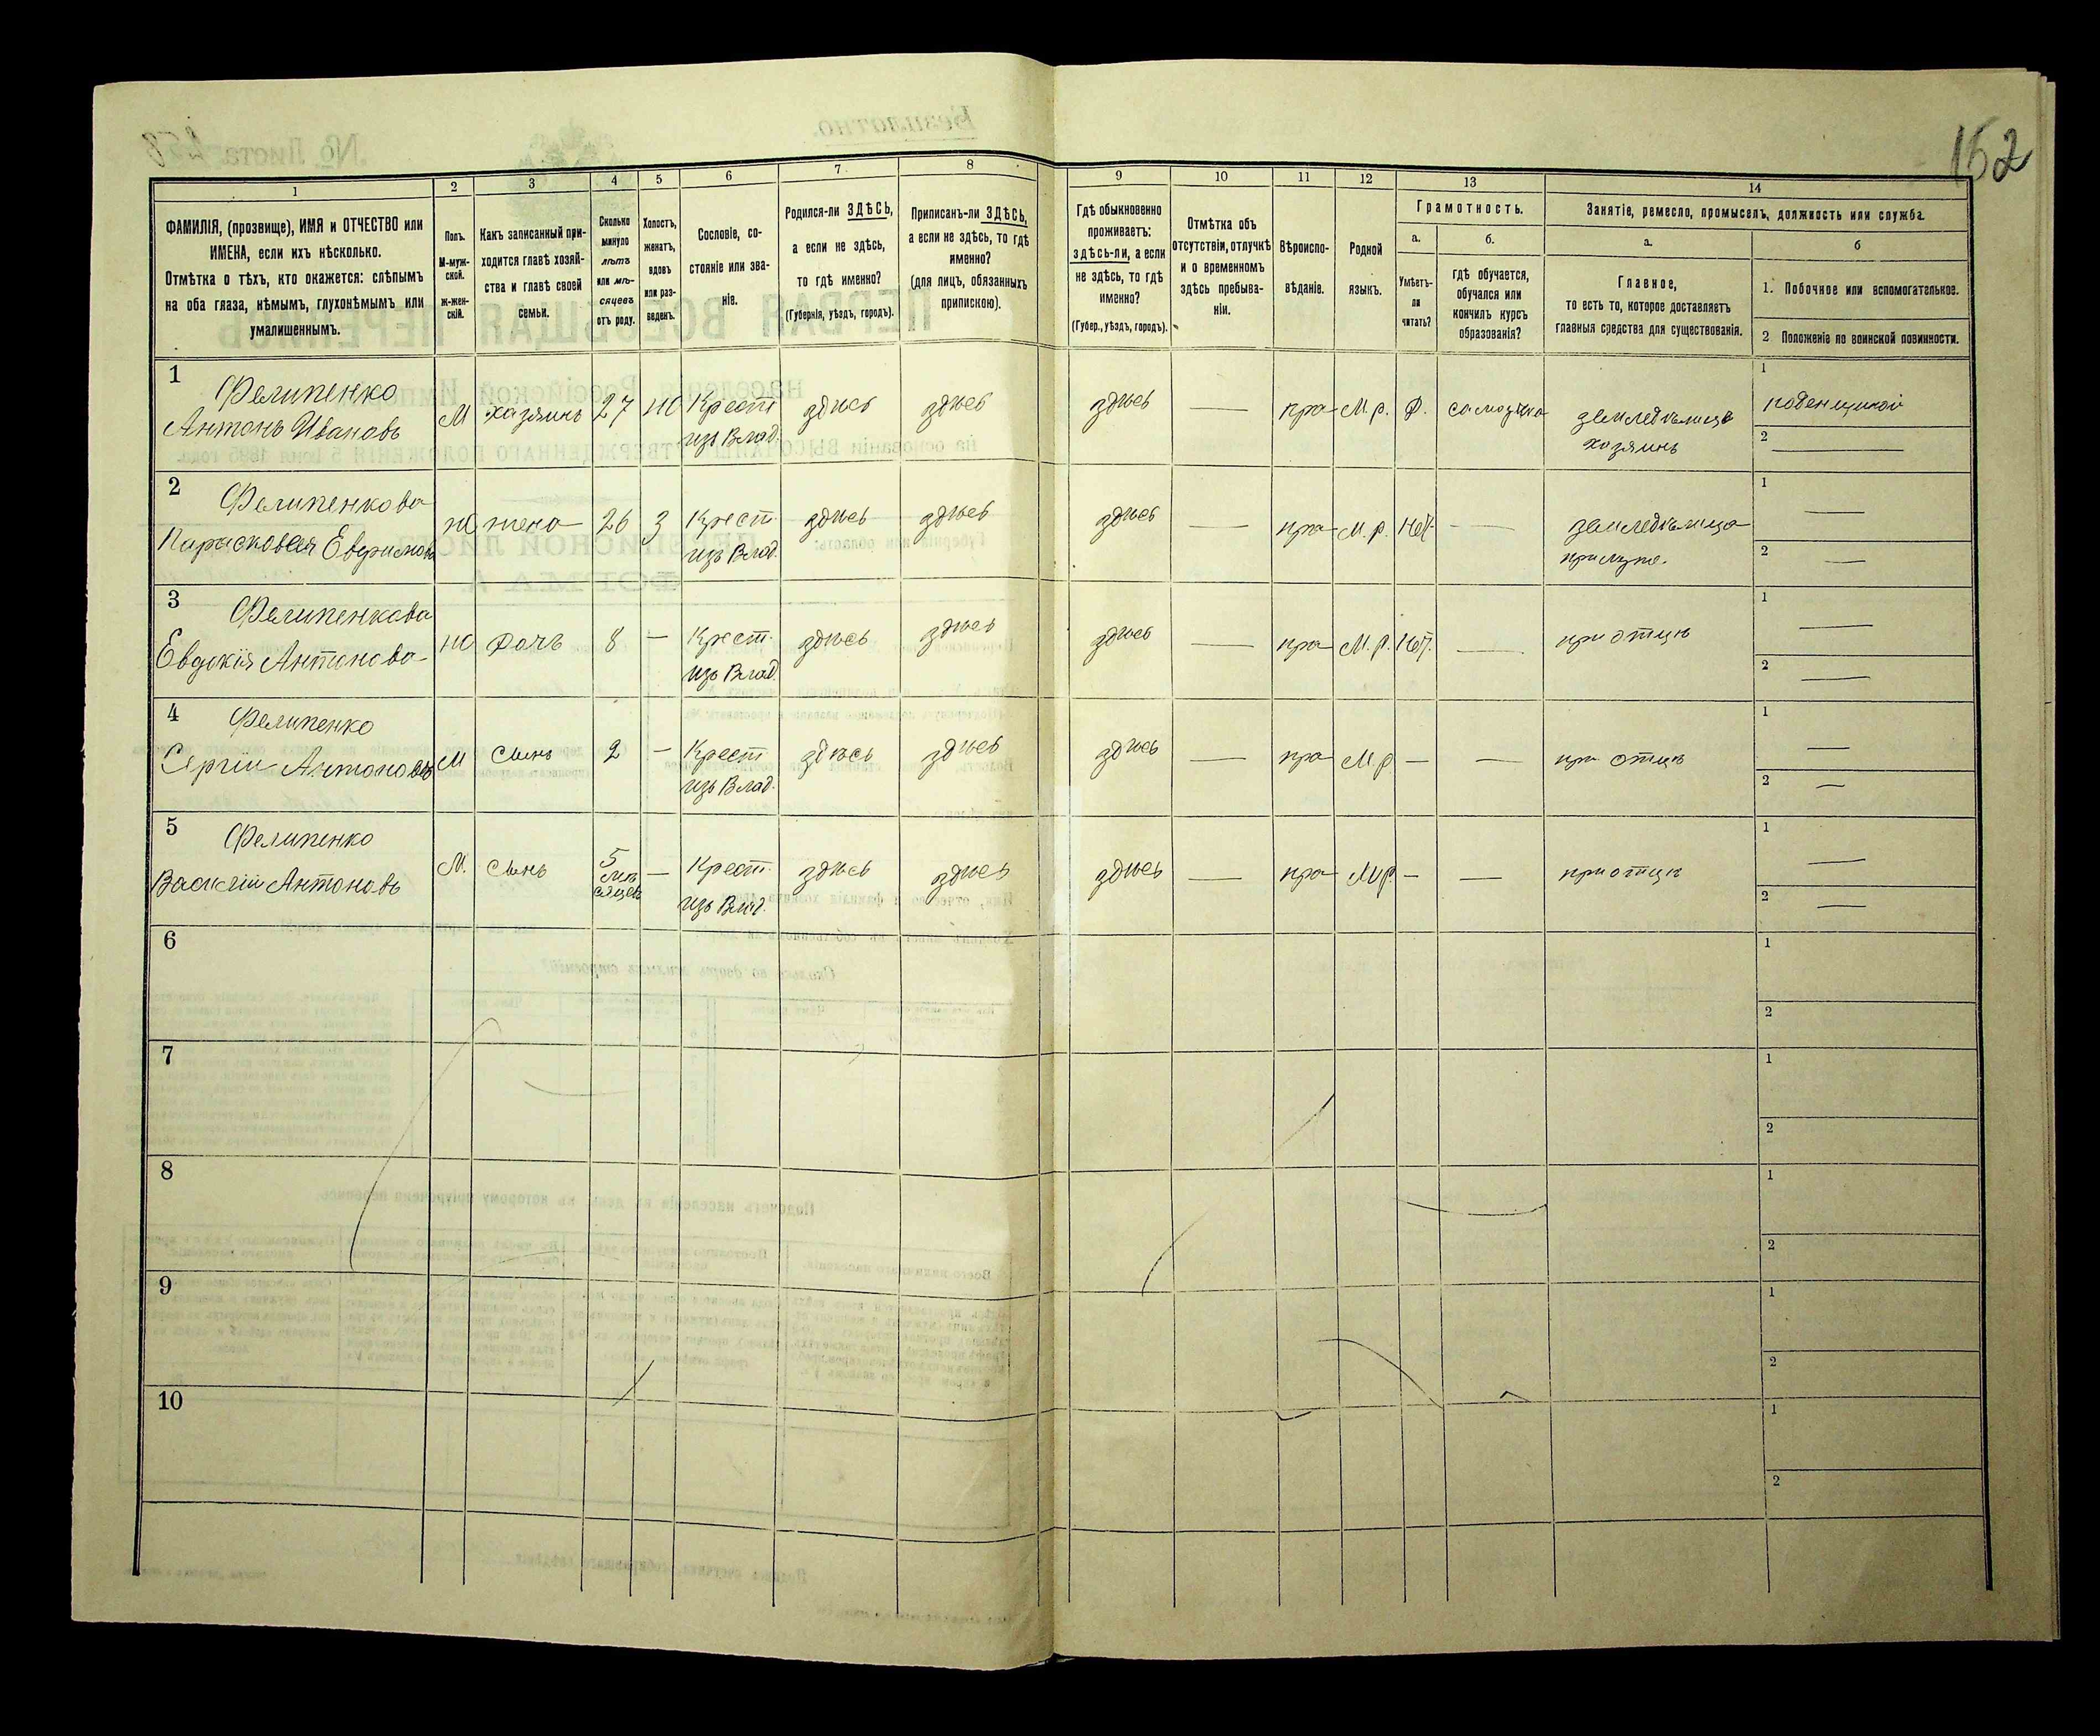 152
1
2
3
4
5
6
7
8
9
10
11
12
13
14
ФАМИЛІЯ, (прозвище), ИМЯ и ОТЧЕСТВО или
ИМЕНА, если ихъ нѣсколько.
Отмѣтка о тѣхъ, кто окажется: слѣпымъ
на оба глаза, нѣмымъ, глухонѣмымъ или
умалишеннымъ.
Полъ.
М-муж-
ской.
ж-жен-
скій.
Какъ записанный при-
ходится главѣ хозяй-
ства и главѣ своей
семьи.
Сколько
минуло
лѣтъ
или мѣ-
сяцевъ
отъ роду.
Холостъ,
женатъ,
вдовъ
или раз-
веденъ.
Сословіе, со-
стояніе или зва-
ніе.
Родился-ли ЗДѢСЬ,
а если не здѣсь,
то гдѣ именно?
(Губернія, уѣздъ, городъ).
Приписанъ-ли ЗДѢСЬ,
а если не здѣсь, то гдѣ
именно?
(для лицъ, обязанныхъ
припискою).
Гдѣ обыкновенно
проживаетъ:
здѣсь-ли, а если
не здѣсь, то гдѣ
именно?
(Губер., уѣздъ, городъ).
Отмѣтка объ
отсутствіи, отлучкѣ
и о временномъ
здѣсь пребыва-
ніи.
Вѣроиспо-
вѣданіе.
Родной
языкъ.
Грамотность.
а.
Умѣетъ-
ли
читать?
б.
гдѣ обучается,
обучался или
кончилъ курсъ
образованія?
Занятіе, ремесло, промыселъ, должность или служба.
а.
Главное,
то есть то, которое доставляетъ
главныя средства для существованія.
б
1. Побочное или вспомогательное.
2 Положеніе по воинской повинности.
1
Фелипенко
Антонъ Ивановъ
М
хазяинъ
27
Ж
Крест
изъ Влад.
здѣсь
здѣсь
здѣсь
—
пра
М. р.
Д.
земледѣлица
хозяинъ
1
поденщикой
2
—
2
Фелипенкова
Парасковея
Ж
жена
26
З
Крест
изъ Влад.
здѣсь
здѣсь
здѣсь
—
пра
М. р.
Нѣт.
—
земледѣлица
при мужѣ.
1
—
2
—
3
Фелипенкова
Евдокія Антонова
Ж
Дочь
8
—
Крест.
изъ Влад.
здѣсь
здѣсь
здѣсь
—
пра
М. р.
Нѣт.
—
при отцѣ
1
—
2
—
4
Фелипенко
Сергій Антоновъ
М
Сынъ
2
—
Крест
изъ Влад.
здѣсь
здѣсь
здѣсь
—
пра
М. р
—
—
при отцѣ
1
—
2
—
5
Фелипенко
Василій Антоновъ
М.
Сынъ
5
мѣ
сяцев
—
Крест.
изъ Влад.
здѣсь
здѣсь
здѣсь
—
пра
М р.
—
—
при отцѣ
1
—
2
—
6
1
2
7
1
2
8
1
2
9
1
2
10
1
2